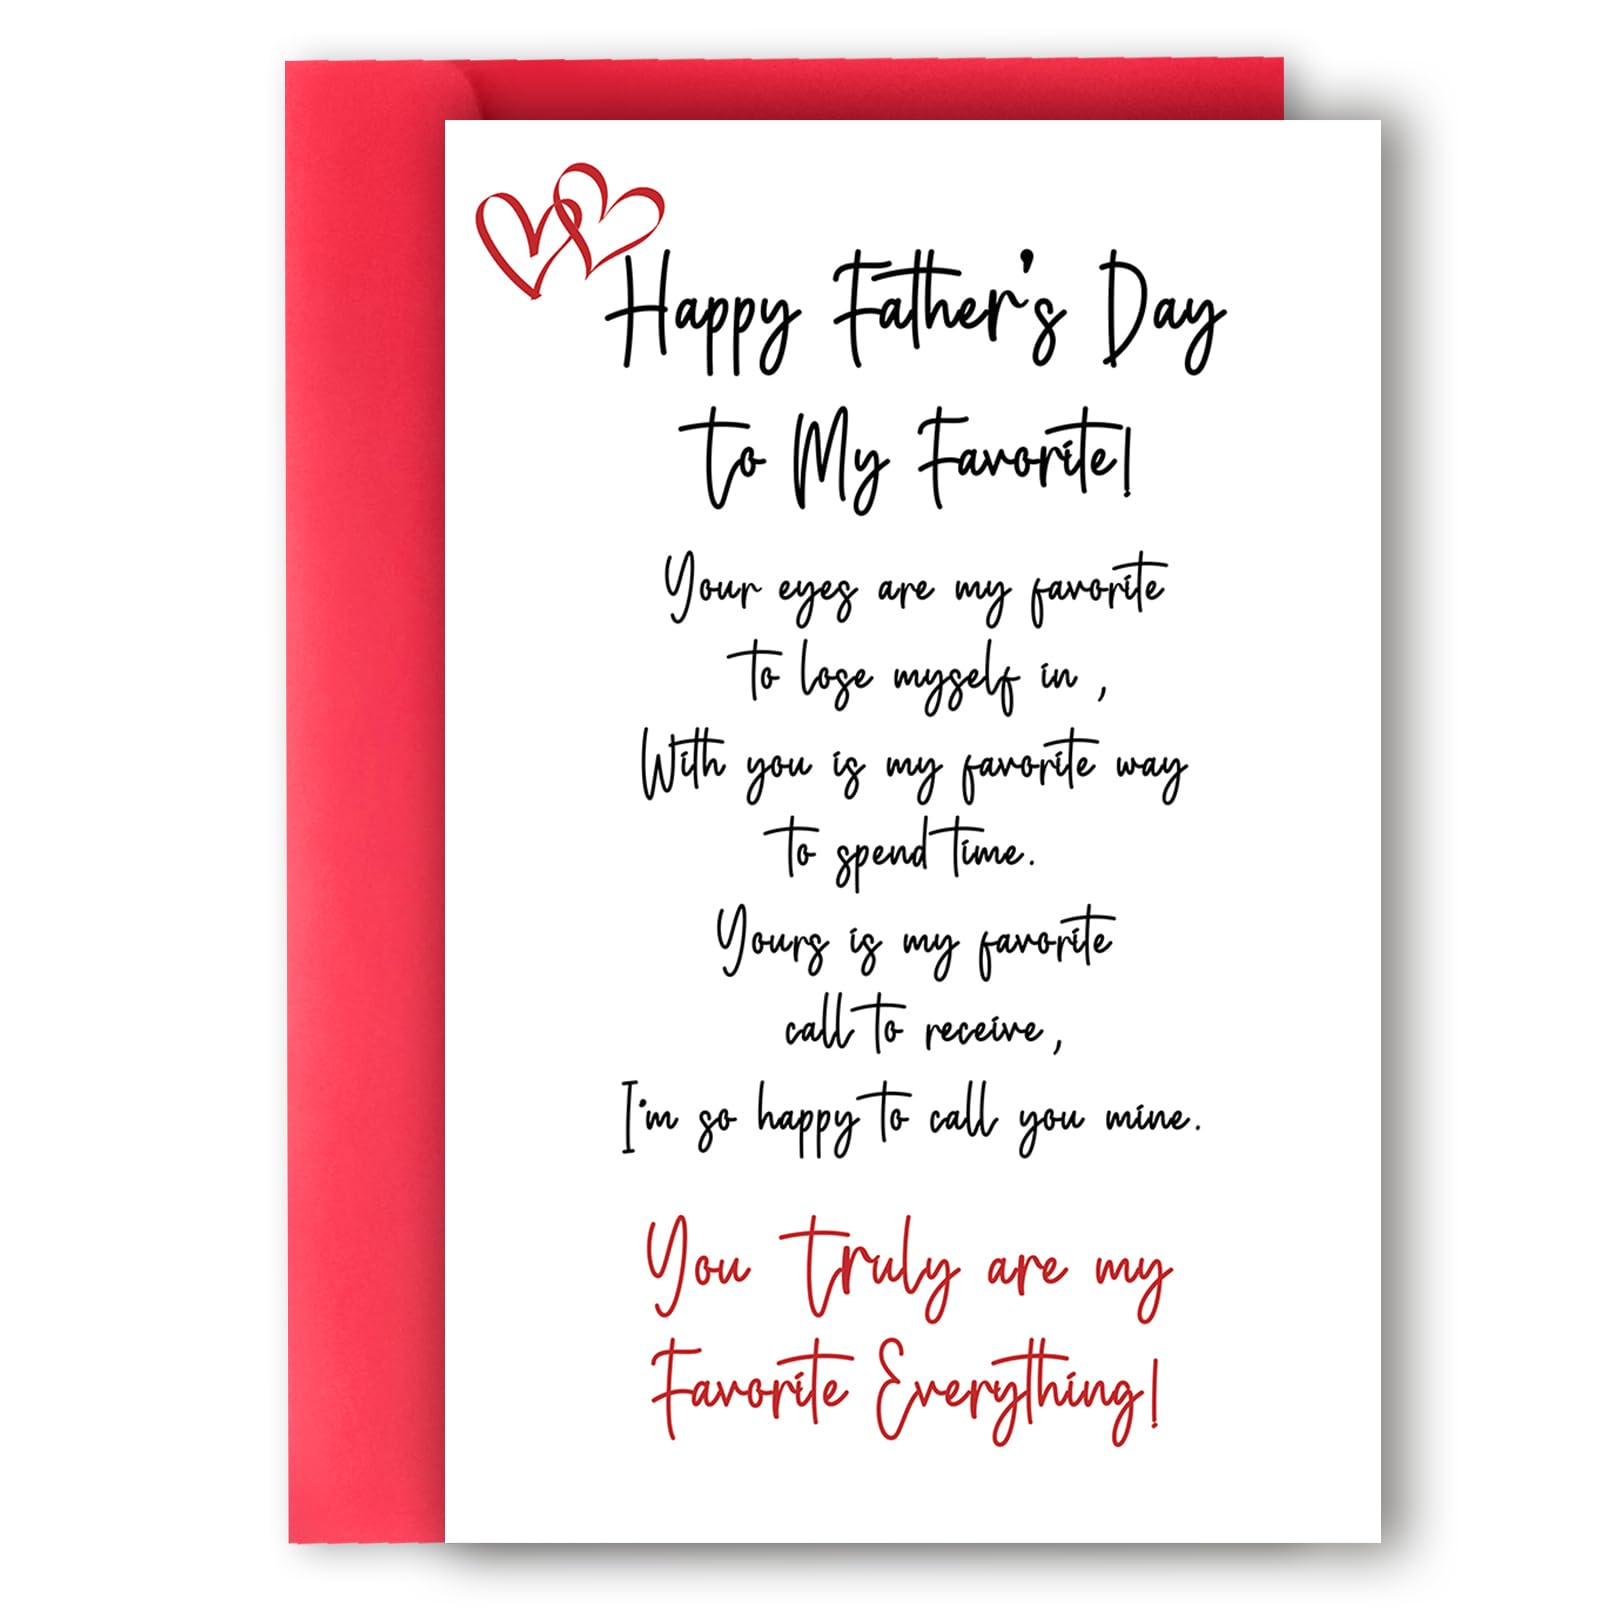 Happy Father's Day
to My Favorite!
Your eyes are my favorite
to lose myself in ,
With you is my favorite way
to spend time.
Yours is my favorite
call to receive,
I'm so happy to call you mine.
You truly are my
Favorite Everything!